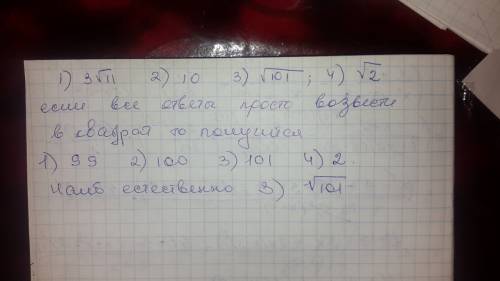 1) 3√11 2) 10 3) √101 ; 4) √2.
если все ответа просто возвести
в квадрат то получийся
1) 99 2) 100 3) 101 4) 2.
Наиб естественно 3) √101